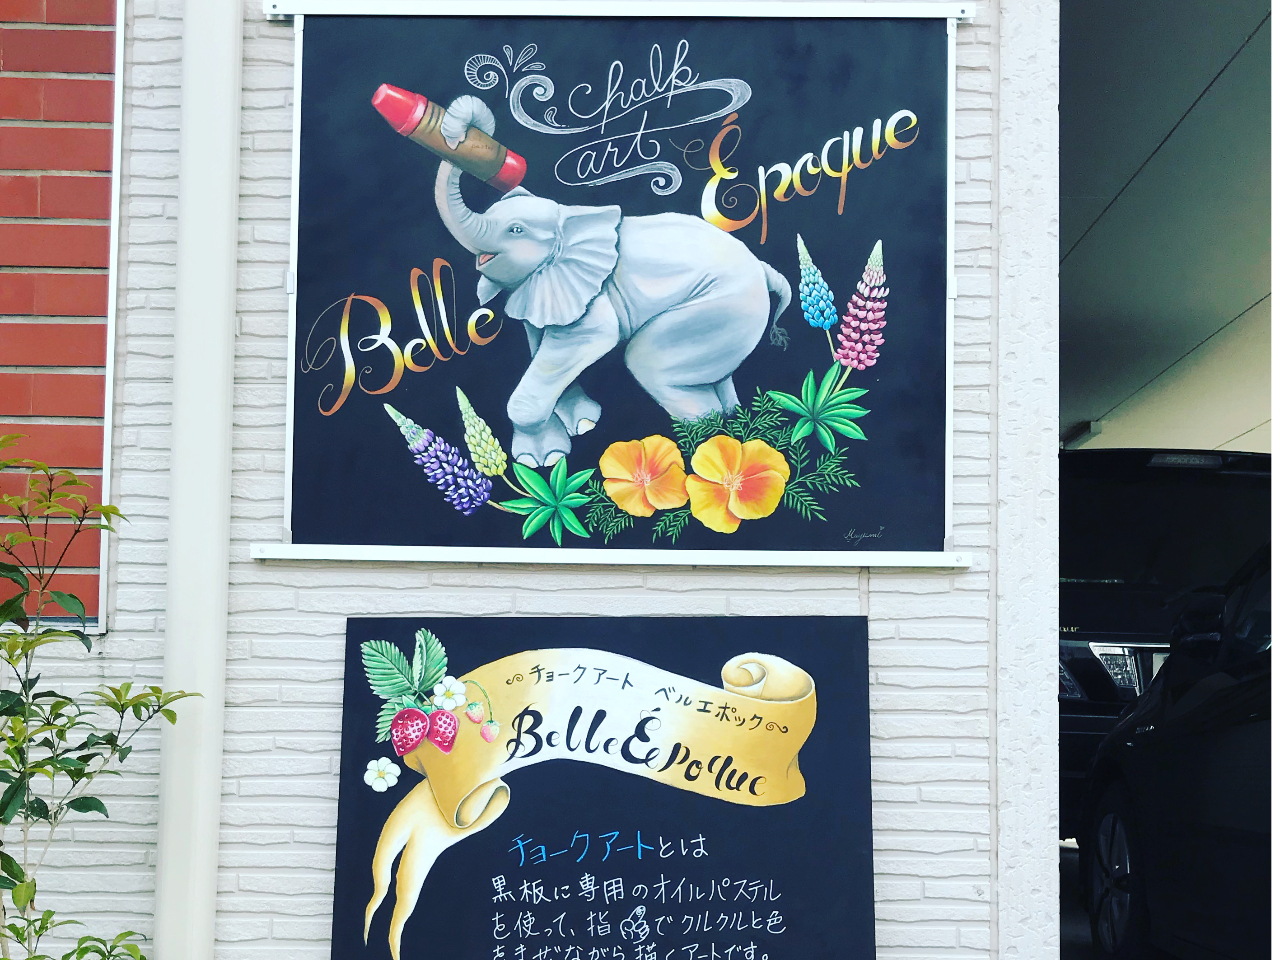 chalk
art
Belle Époque
Mayumi
チョークアート ベルエポック
Belle Époque
チョークアートとは
黒板に専用のオイルパステル
を使って、指でクルクルと色
をまぜながら描くアートです。